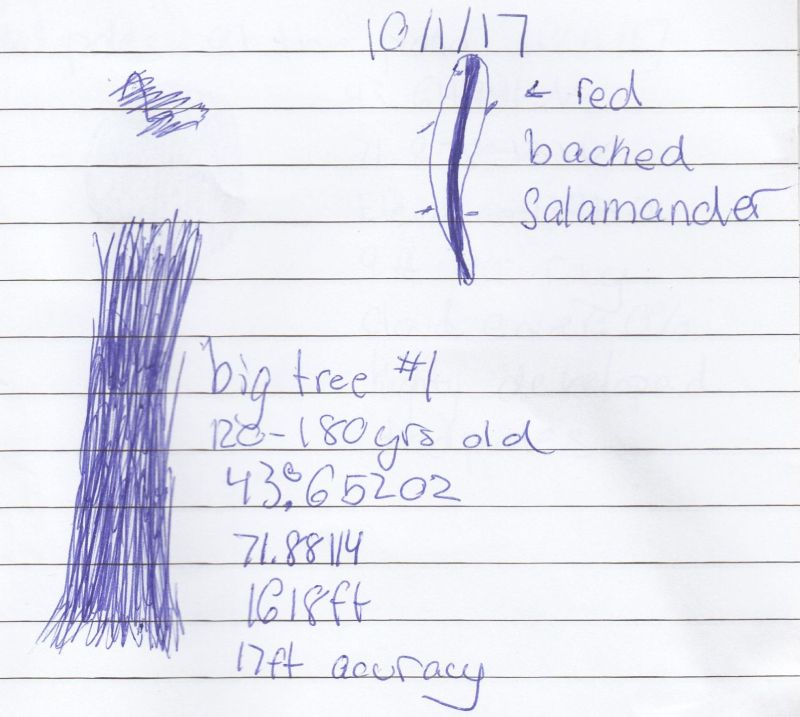 10/1/17
← red
backed
Salamander
big tree #1
120-180yrs old
43.65202
71.88114
1618ft
17ft accuracy